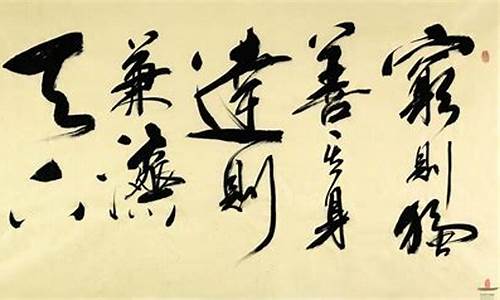 窮則獨
善其身
達則
兼濟
天下